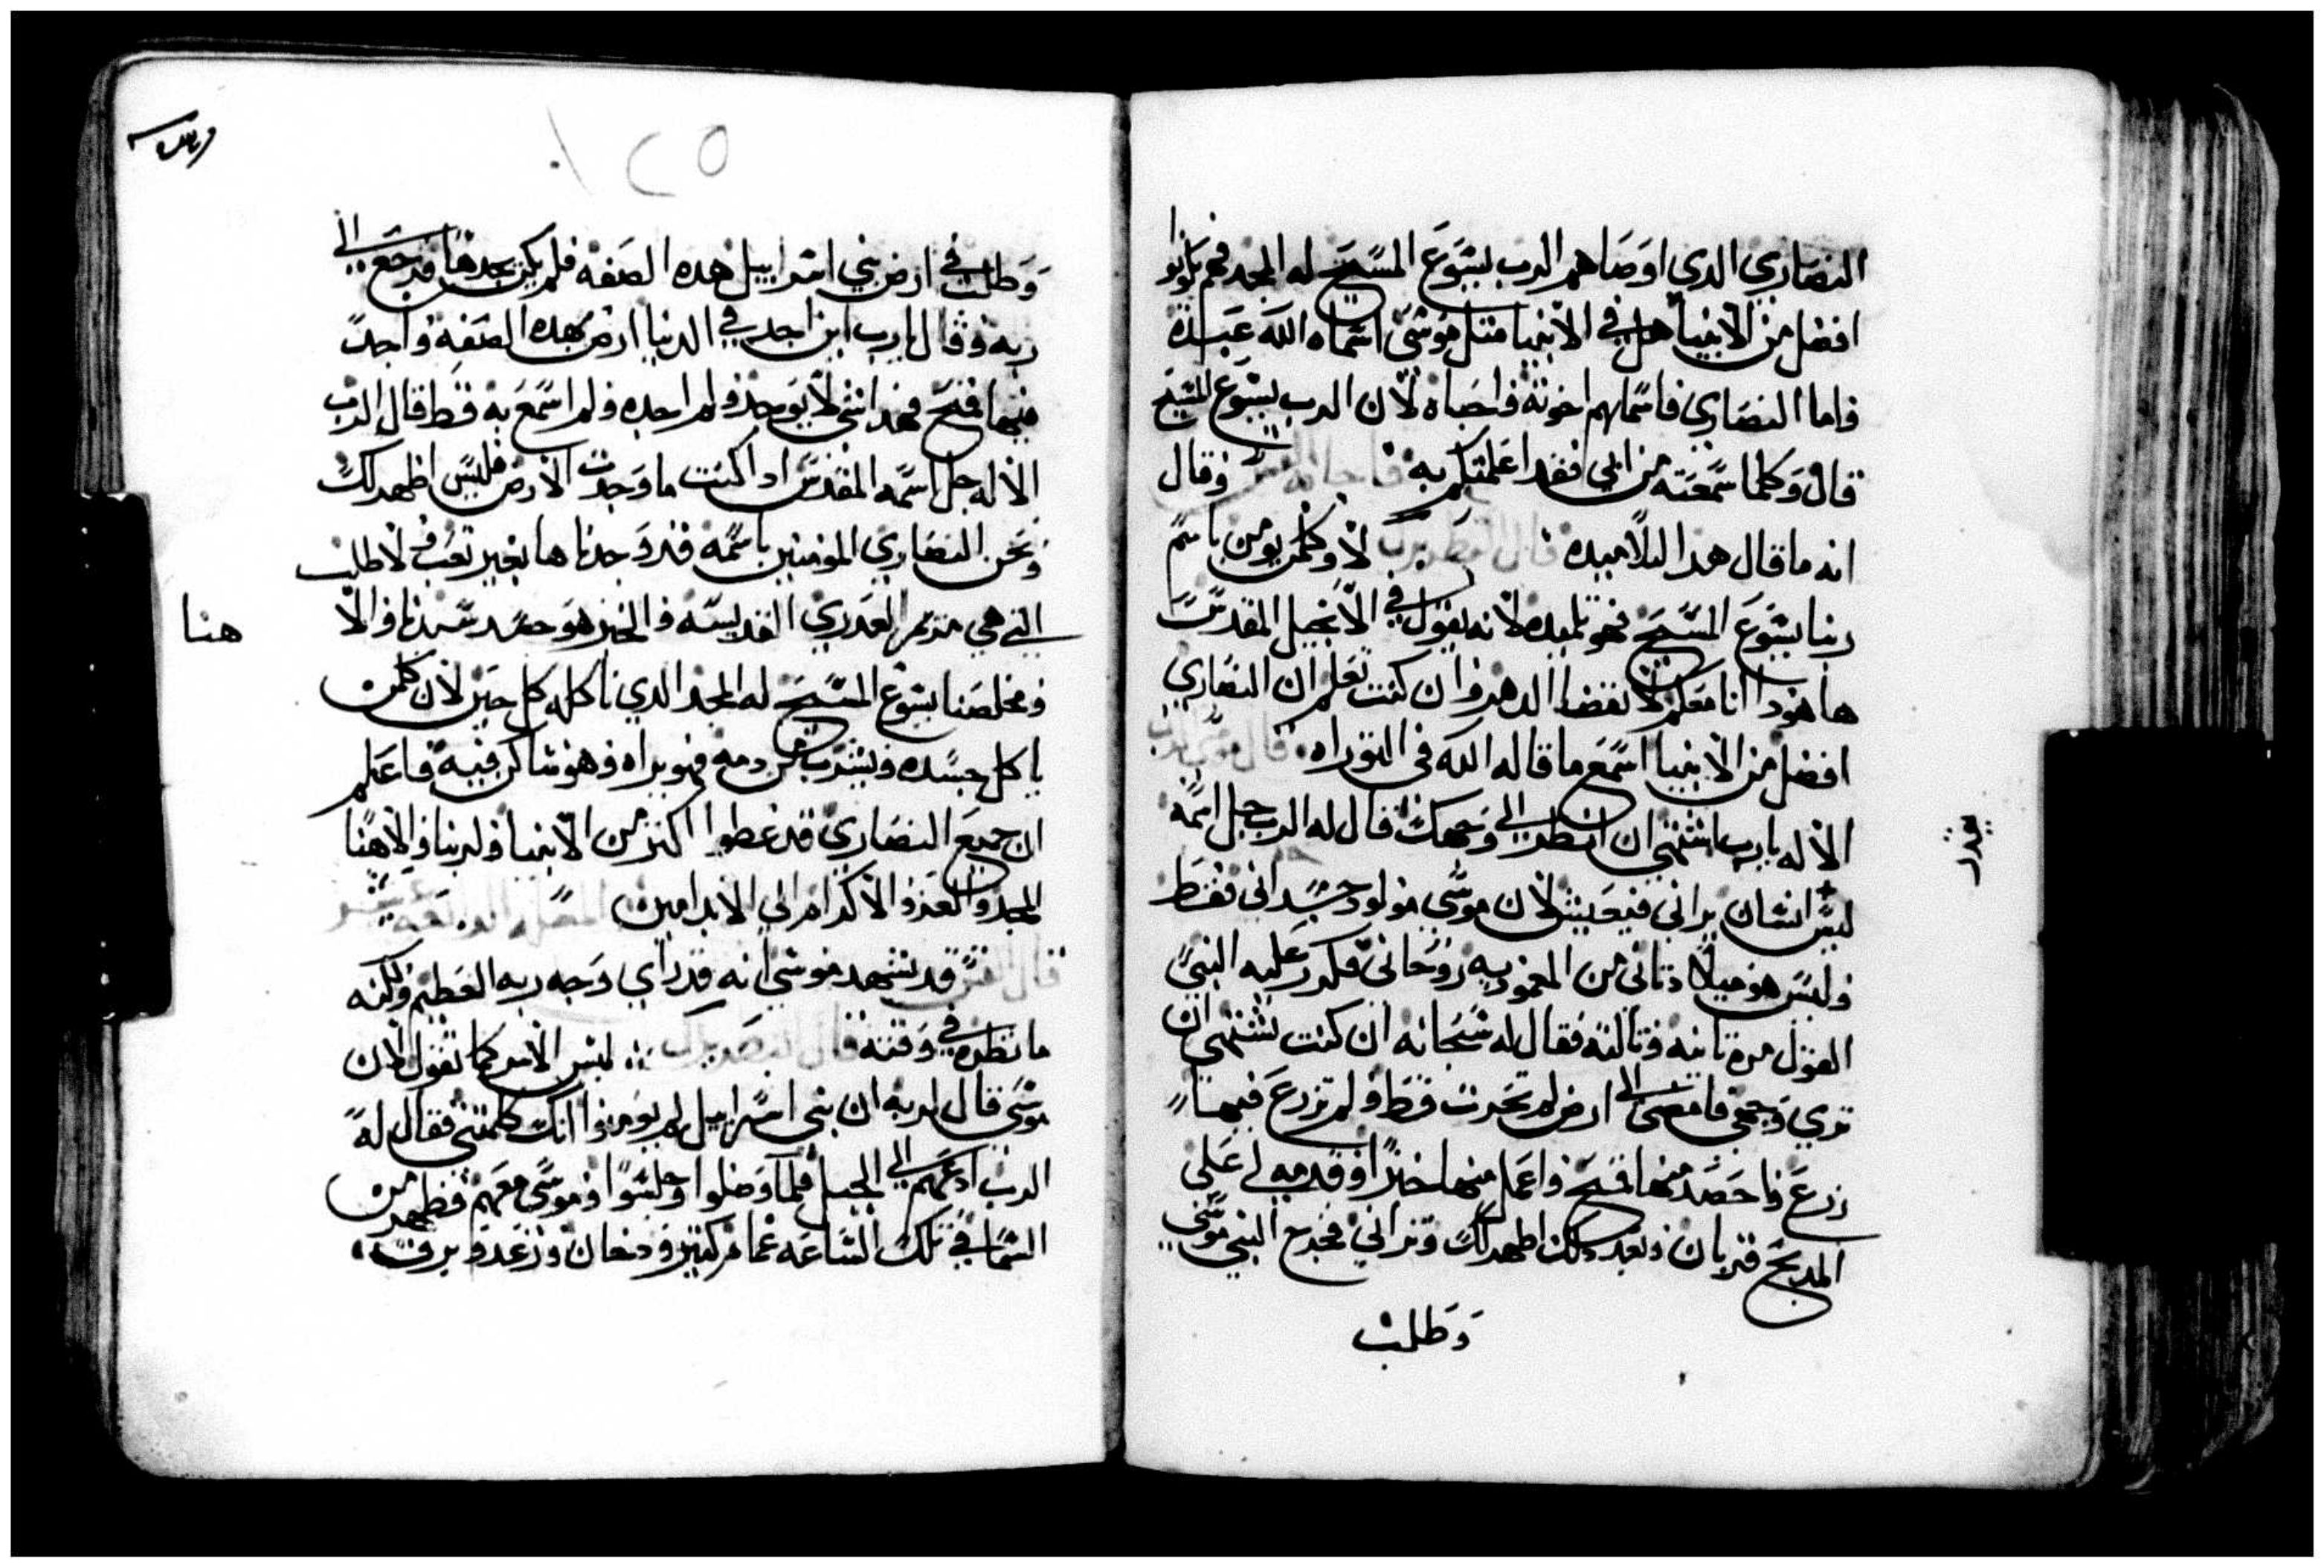 النصاري الدي اوصاهم الرب يسوع المسيح له المجد فهم يكونوا
افضل من الانبيا هل في الانبيا متل موسى اسماه الله عبده
واما النصاري فاسماهم اخوته واحباه لان الرب يسوع المسيح
قال وكلما سمعته من ابي فقد اعلمتكم به وقال
انه ما قال هدا لتلاميده قال البطريرك لا وكلمن يومن باسم
ربنا يسوع المسيح فهو تلميده لانه يقول في الانجيل المقدس
ها هودا انا معكم الى انقضا الدهر وان كنت تعلم ان النصاري
افضل من الانبيا اسمع ما قاله الله في التوراه قال موسى
الاله يا رب اشتهي ان انظر الى وجهك قال له الرب جل اسمه
ليس انسان يراني فيعيش لان موسى مولود جسداني فقط
وليس هو ميلاد تاني من المعموديه روحاني فكرر عليه النبي
القول مره تانيه وتالته فقال له سبحانه ان كنت تشتهي ان
تري وجهي فامضى الى ارض لم تحرت قط ولم تزرع فيها
زرع واحصد منها قمح واعمل منها خبزا وقدمه لي على
المدبح قربان وبعد دلك اظهر لك وتراني فخرج النبي موسي
وطلب
١٢٥
وطلب في ارض بني اسراييل هده الصفه فلم يكن يجدها فرجع الى
ربه وقال يا رب اين اجد في الدنيا ارض بهده الصفه واجد
فيها قمح فهدا شي لا يوجد ولم اجده ولم اسمع به قط قال الرب
الاله جل اسمه المقدس ادا كنت ما وجدت الارض فليس اظهر لك
ونحن النصاري المومنين باسمه قد وجدناها بغير تعب ولا طلب
التي هي مريم العدري القديسه والخبز هو جسد سيدنا والا
هنا
ومخلصنا يسوع المسيح له المجد الدي ناكله كل حين لان كلمن
ياكل جسده ويشرب من دمه فهو يراه وهو ساكن فيه فاعلم
ان جميع النصاري قد عطوا اكتر من الانبيا ولربنا والاهنا
المجد والعز والاكرام الي الابد امين
قال قد شهد موسي انه قد راي وجه ربه العظيم ولكنه
ما نظره في وقته قال البطريرك ليس الامر كما تقول لان
موسى قال لربه ان بني اسراييل لم يومنوا انك كلمتني فقال له
الرب ادعهم الى الجبل فلما وصلوا وجلسوا وموسى معهم فظهر من
السما في تلك الساعه غمام كتير ودخان ورعد وبرق